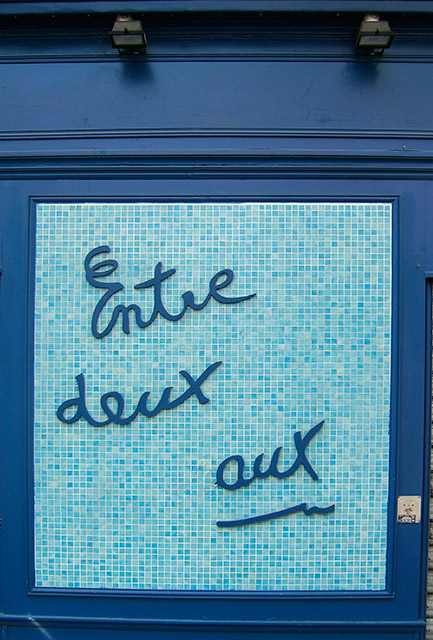 Entre
deux
aux